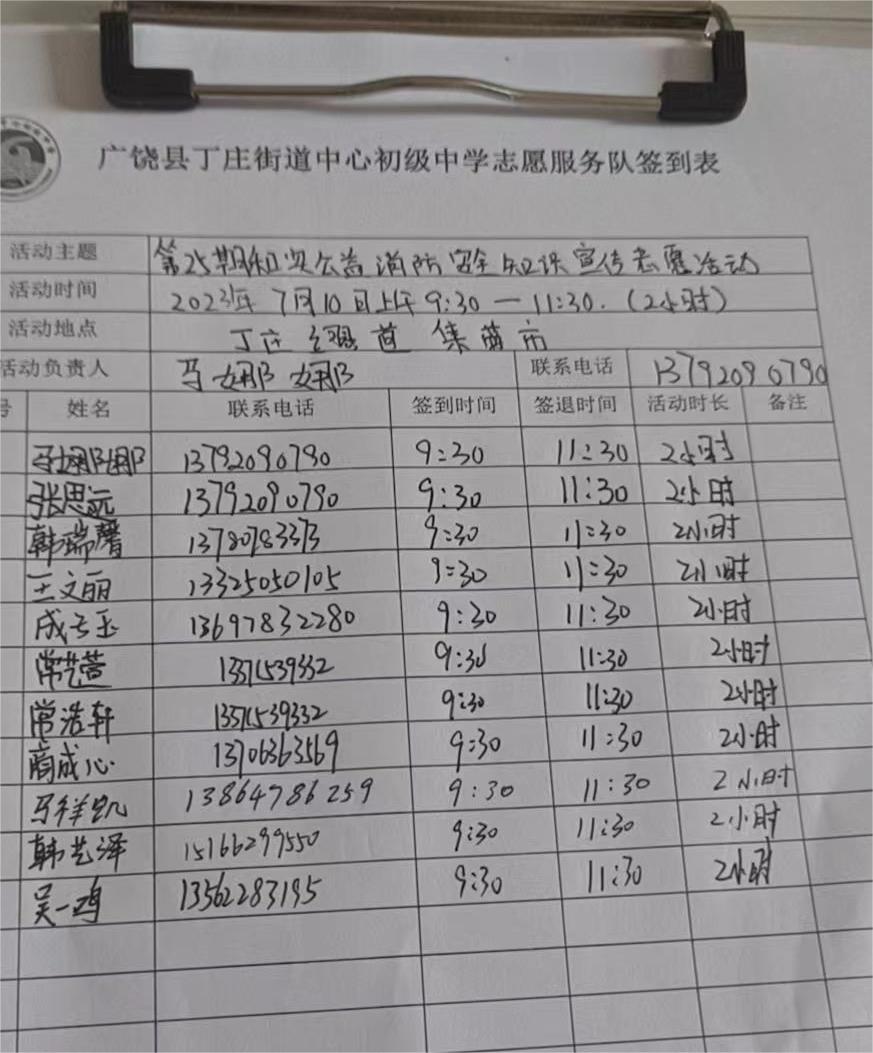 广饶县丁庄街道中心初级中学志愿服务队签到表
活动主题 第25期和安公益消防安全知识宣传志愿活动
活动时间 2023年7月10日上午9:30—11:30.(2小时)
活动地点 丁庄街道集贸市
活动负责人 马娜娜 联系电话 13792090790
号 姓名 联系电话 签到时间 签退时间 活动时长 备注
马娜娜 13792090790 9:30 11:30 2小时
张思远 13792090790 9:30 11:30 2小时
韩瑞馨 13780783373 9:30 11:30 2小时
王文丽 13325050105 9:30 11:30 2小时
成子玉 13697832280 9:30 11:30 2小时
常艺萱 9:30 11:30 2小时
常浩轩 9:30 11:30 2小时
商成心 13706363569 9:30 11:30 2小时
马祥凯 13864786259 9:30 11:30 2小时
韩艺泽 15166299550 9:30 11:30 2小时
吴一鸣 13562283195 9:30 11:30 2小时